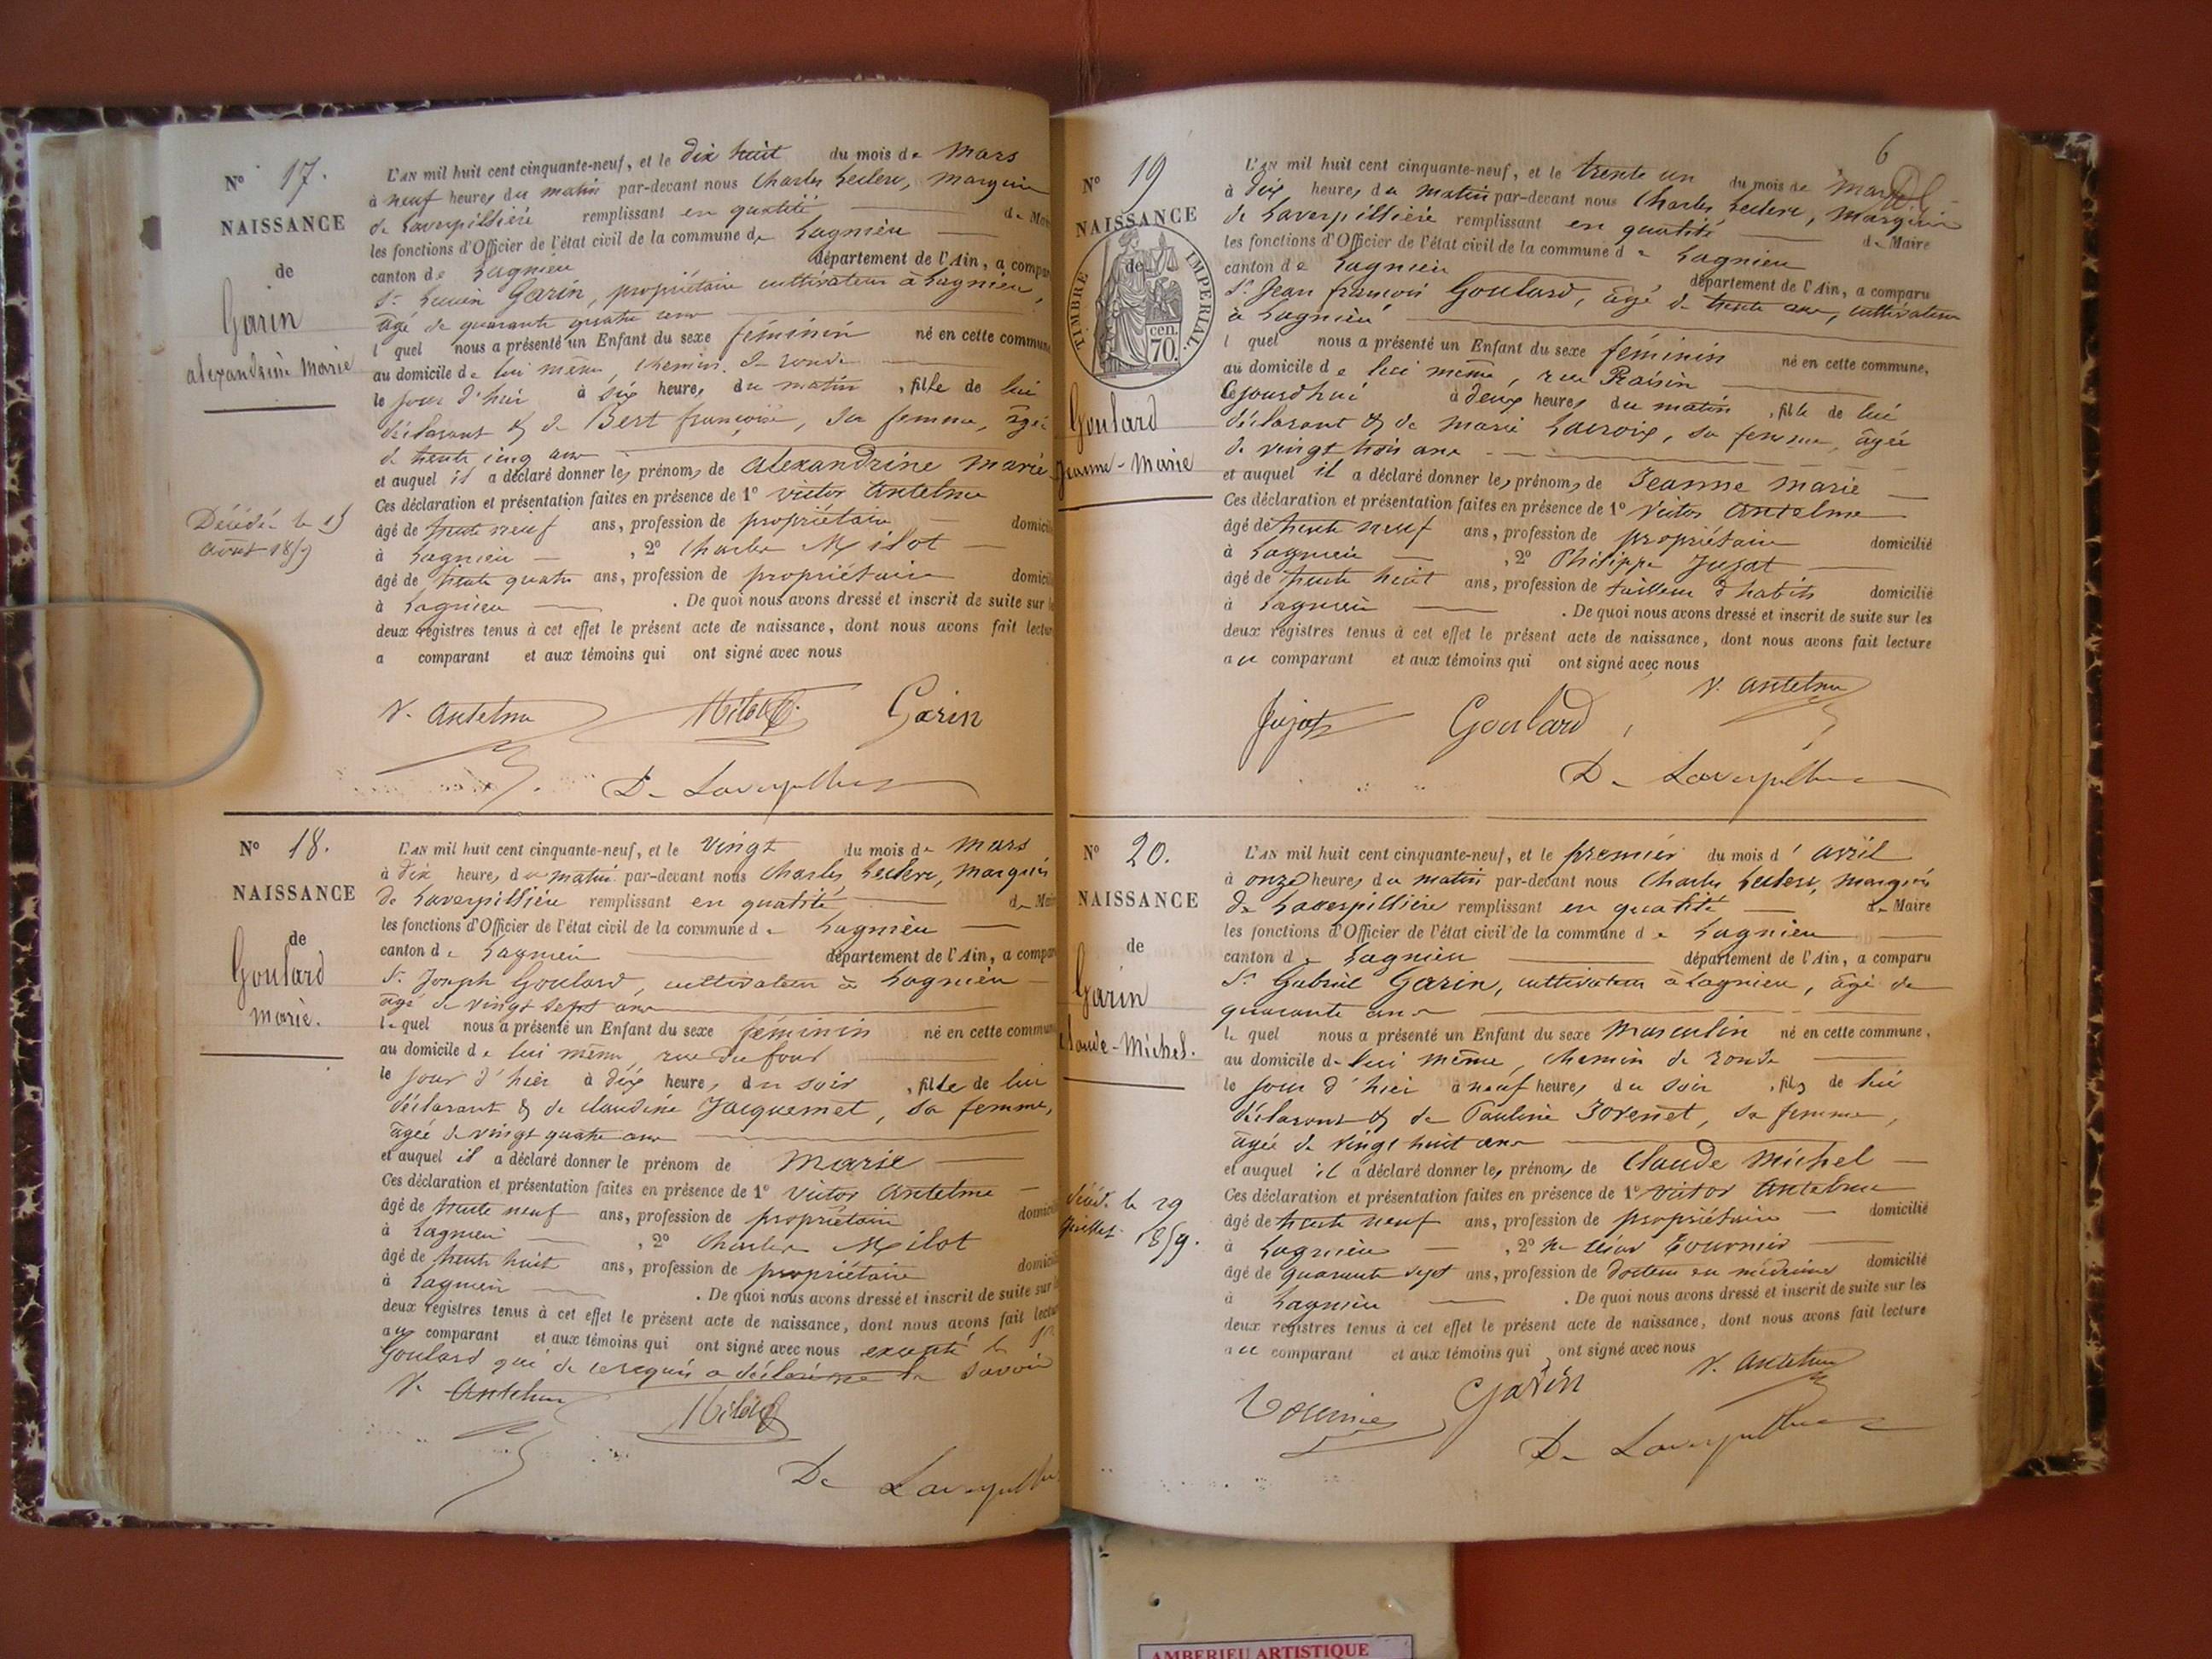 N° 17.
NAISSANCE
de
Garin
alexandrine Marie
Décédée le
août 1859
L'AN mil huit cent cinquante-neuf, et le dix huit du mois de Mars
à neuf heures du matin par-devant nous Charles Leclerc, Marquis
de Laverpillière remplissant en qualité de Mai
les fonctions d'Officier de l'état civil de la commune de Lagnieu
canton de Lagnieu département de l'Ain, a compar
Sr Garin, propriétaire cultivateur à Lagnieu,
âgé de quarante quatre ans
l quel nous a présenté un Enfant du sexe féminin né en cette commune
au domicile de lui même, chemin de ronde
le jour d'hier à six heures du matin, fille de lui
déclarant & de Bert françoise, sa femme, âgée
de trente cinq ans
et auquel il a déclaré donner les prénoms de alexandrine marie
Ces déclaration et présentation faites en présence de 1° victor Antelme
âgé de trente neuf ans, profession de propriétaire domicili
à Lagnieu, 2° Charles Milot
âgé de trente quatre ans, profession de propriétaire domicili
à Lagnieu. De quoi nous avons dressé et inscrit de suite sur l
deux registres tenus à cet effet le présent acte de naissance, dont nous avons fait lectur
a comparant et aux témoins qui ont signé avec nous
V. Antelme Milot Garin
De Laverpillière
N° 18.
NAISSANCE
de
Goulard
Marie.
L'AN mil huit cent cinquante-neuf, et le Vingt du mois de Mars
à dix heures du matin par-devant nous Charles Leclerc, Marquis
de Laverpillière remplissant en qualité de Mair
les fonctions d'Officier de l'état civil de la commune de Lagnieu
canton de Lagnieu département de l'Ain, a compar
Sr Joseph Goulard, cultivateur à Lagnieu
âgé de vingt sept ans
le quel nous a présenté un Enfant du sexe féminin né en cette commun
au domicile de lui même, rue du four
le jour d'hier à dix heures du soir, fille de lui
déclarant & de claudine Jacquemet, sa femme,
âgée de vingt quatre ans
et auquel il a déclaré donner le prénom de Marie
Ces déclaration et présentation faites en présence de 1° Victor Antelme
âgé de trente neuf ans, profession de propriétaire domicil
à Lagnieu, 2° Charles Milot
âgé de trente huit ans, profession de propriétaire domicil
à Lagnieu. De quoi nous avons dressé et inscrit de suite sur l
deux registres tenus à cet effet le présent acte de naissance, dont nous avons fait lectur
au comparant et aux témoins qui ont signé avec nous excepté le Sr
Goulard qui de ce requis a déclaré ne le savoir
V. Antelme Milot
De Laverpillière
6
N° 19
NAISSANCE
de
TIMBRE IMPERIAL
70 cen.
Goulard
Jeanne-Marie
L'AN mil huit cent cinquante-neuf, et le trente un du mois de mars
à dix heures du matin par-devant nous Charles Leclerc, Marquis
de Laverpillière remplissant en qualité de Maire
les fonctions d'Officier de l'état civil de la commune de Lagnieu
canton de Lagnieu département de l'Ain, a comparu
Sr Jean françois Goulard, âgé de trente ans, cultivateur
à Lagnieu
l quel nous a présenté un Enfant du sexe féminin né en cette commune,
au domicile de lui même, rue Raisin
Cejourd'hui à deux heures du matin, fille de lui
déclarant & de Marie Lacroix, sa femme, âgée
de vingt trois ans
et auquel il a déclaré donner les prénoms de Jeanne Marie
Ces déclaration et présentation faites en présence de 1° Victor Antelme
âgé de trente neuf ans, profession de propriétaire domicilié
à Lagnieu, 2° Philippe Jujat
âgé de trente huit ans, profession de tailleur d'habits domicilié
à Lagnieu. De quoi nous avons dressé et inscrit de suite sur les
deux registres tenus à cet effet le présent acte de naissance, dont nous avons fait lecture
au comparant et aux témoins qui ont signé avec nous
V. Antelme
Jujat Goulard
De Laverpillière
N° 20.
NAISSANCE
de
Garin
Claude-Michel.
décéd. le 29
Juillet 1859.
L'AN mil huit cent cinquante-neuf, et le premier du mois d'avril
à onze heures du matin par-devant nous Charles Leclerc, Marquis
de Laverpillière remplissant en qualité de Maire
les fonctions d'Officier de l'état civil de la commune de Lagnieu
canton de Lagnieu département de l'Ain, a comparu
Sr Gabriel Garin, cultivateur à Lagnieu, âgé de
quarante ans
le quel nous a présenté un Enfant du sexe Masculin né en cette commune,
au domicile de lui même, chemin de ronde
le jour d'hier à neuf heures du soir, fils de lui
déclarant & de Pauline Jovenet, sa femme,
âgée de vingt huit ans
et auquel il a déclaré donner les prénoms de Claude Michel
Ces déclaration et présentation faites en présence de 1° Victor Antelme
âgé de trente neuf ans, profession de propriétaire domicilié
à Lagnieu, 2° César Tournier
âgé de quarante sept ans, profession de docteur en médecine domicilié
à Lagnieu. De quoi nous avons dressé et inscrit de suite sur les
deux registres tenus à cet effet le présent acte de naissance, dont nous avons fait lecture
au comparant et aux témoins qui ont signé avec nous
V. Antelme
Tournier Garin
De Laverpillière
AMBERIEU ARTISTIQUE